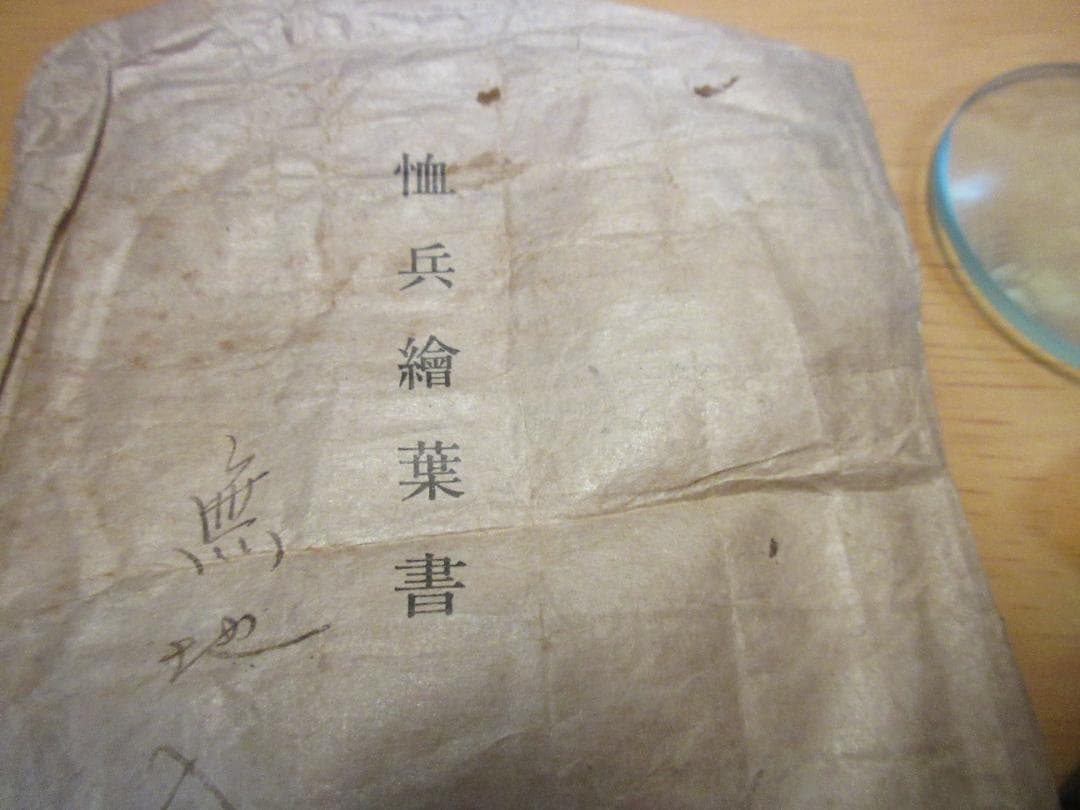 恤兵繪葉書
無地入